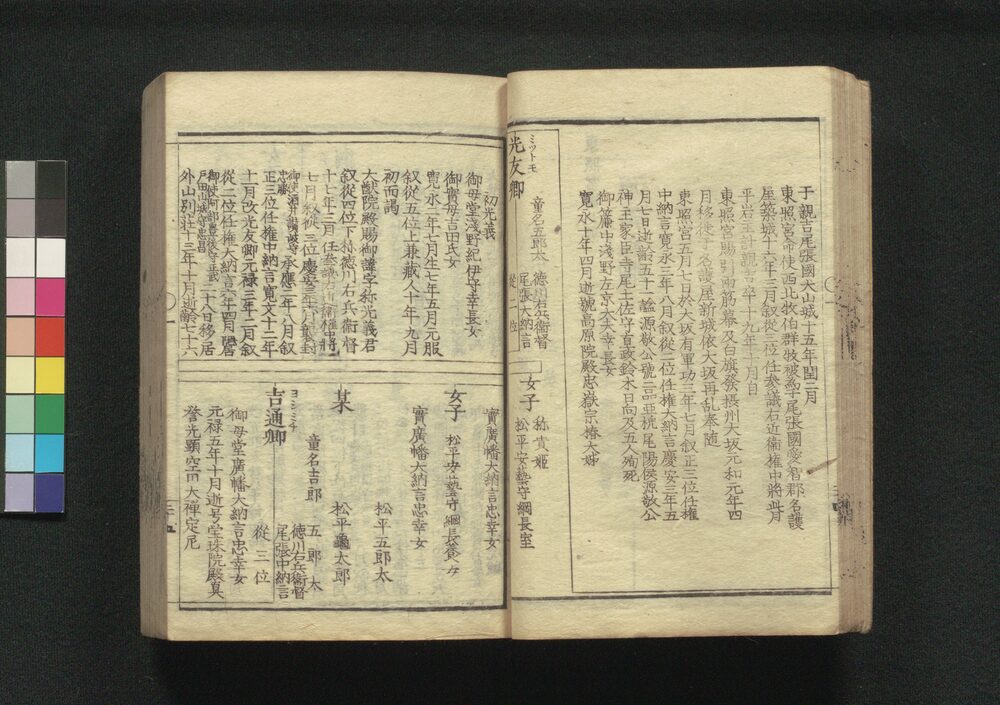 于親吉尾張國犬山城十五年閏二月
東照宮命使西北牧伯群牧被築尾張國愛智郡名護
屋築城十六年三月叙從三位任參議右近衛權中將此月
平岩主計親吉卒十九年十月自
東照宮賜引両筋幕及白旗發摂州大坂元和元年四
月移徙于名護屋新城依大坂再乱奉随
東照宮五月七日於大坂有軍功三年七月叙正三位任權
中納言寛永三年八月叙從二位任權大納言慶安三年五
月七日逝齢五十一謚源敬公號二品亜槐尾陽侯源敬公
神主家臣寺尾土佐守直政鈴木日向及五人殉死
御簾中浅野左京大夫幸長女
寛永十年四月逝號高原院殿忠嶽宗椿大姊
ミツトモ
光友卿
童名五郎太
德川右兵衛督
尾張大納言
從二位
女子
称貴姬
松平安藝守綱長室
初光義
御母堂浅野紀伊守幸長女
御實母吉田氏女
寛永二年七月生七年五月元服
叙從五位上兼藏人十年九月
初而謁
大猷院殿賜御諱字称光義君
叙從四位下称德川右兵衛督
十七年三月任參議右近衛權中將
七月叙從三位慶安三年六月襲封
御使酒井讃岐守忠勝
承應二年八月叙
正三位任權中納言寛文十二年
十月改光友卿元禄三年二月叙
從二位任權大納言六年四月隠居
御使阿部豊後守正武
戸田山城守忠昌
二十八日移居
外山別荘十三年十月逝齢七十六
實廣幡大納言忠幸女
女子
松平安藝守綱長養女
實廣幡大納言忠幸女
松平五郎太
某
松平龜太郎
ヨシミチ
吉通卿
童名吉郎
五郎太
德川右兵衛督
尾張中納言
從三位
御母堂廣幡大納言忠幸女
元禄五年十月逝号堂珠院殿真
譽光顕空円大禅定尼